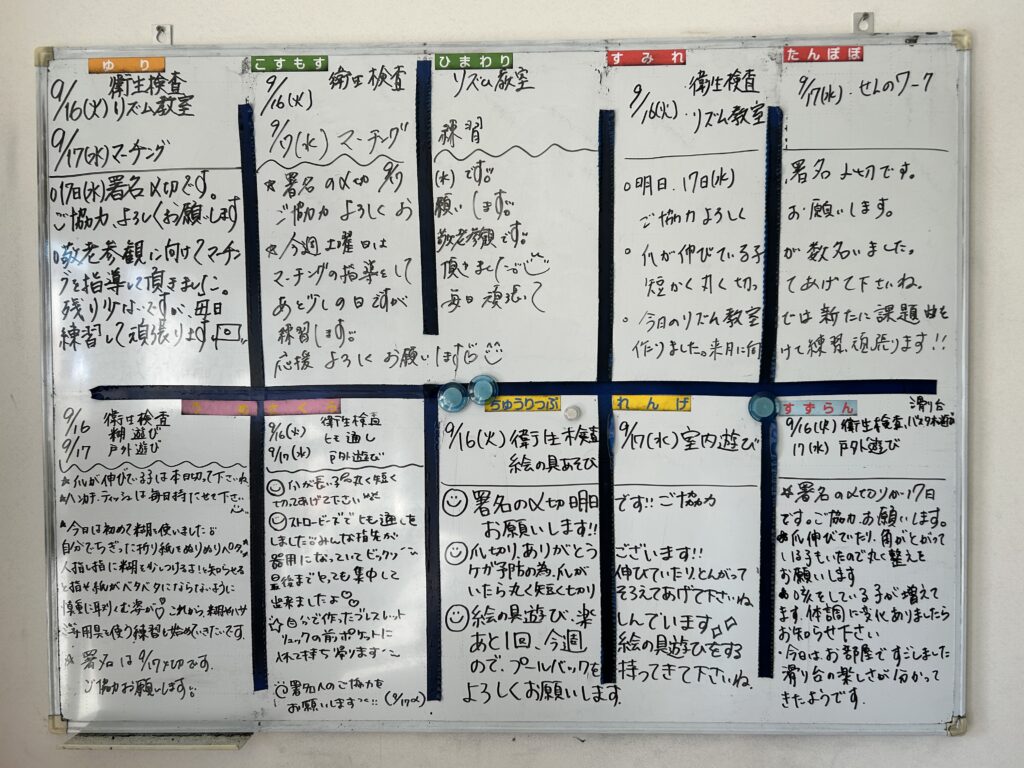 ゆり
9/16(火) 衛生検査
リズム教室
9/17(水) マーチング
○17日(水)署名〆切です。
ご協力よろしくお願いします
○敬老参観に向けてマーチン
グを指導して頂きました。
残り少ないですが、毎日
練習して頑張ります
こすもす
9/16(火) 衛生検査
9/17(水) マーチング
★署名の〆切 9/17
ご協力よろしくお
★今週土曜日は
マーチングの指導をして
あと少しの日ですが
練習します。
応援よろしくお願いします
ひまわり
リズム教室
練習
(水)です。
願いします。
敬老参観です。
頂きました
毎日頑張って
すみれ
9/16(火) 衛生検査
・リズム教室
○明日、17日(水)
ご協力よろしく
○爪が伸びている子
短かく丸く切っ
○今日のリズム教室
作りました。来月に向
たんぽぽ
9/17(水)・せんのワーク
署名〆切です。
お願いします。
が数名いました。
てあげて下さいね。
では新たに課題曲を
けて練習、頑張ります!!
9/16 衛生検査
糊遊び
9/17 戸外遊び
★爪が伸びている子は本日切って下さいね
★ハンカチ・ティッシュは毎日持たせて下さい
★今日は初めて糊を使いました
自分でちぎった折り紙をぬりぬりペタッ
人指し指に糊をが
と指や紙がベタベタにならないように
慎重に取りくむ姿が♡これから糊やハサ
ミ等用具を使う練習を始めていきたいです。
★署名は9/17〆切です。
ご協力お願いします。
さくら
9/16(火) 衛生検査
ヒモ通し
9/17(水) 戸外遊び
爪が長い子は丸く短く
切ってあげて下さい
ストロービーズでヒモ通しを
しました みんな指先が
器用になっていてビックリ
最後までとっても集中して
出来ましたよ♡
☆自分で作ったブレスレット
リュックの前ポケットに
入れて持ち帰ります
署名人のご協力を
お願いします!! (9/17〆)
ちゅうりっぷ
9/16(火) 衛生検査
絵の具あそび
署名の〆切明日
お願いします!!
爪切り、ありがとう
ケガ予防の為、爪が
いたら丸く短く切り
絵の具遊び、楽
あと1回、今週
ので、プールバックを
よろしくお願いします。
れんげ
9/17(水) 室内遊び
です!!ご協力
ございます!!
伸びていたり、とんがって
そろえてあげて下さいね
しんでいます。
絵の具遊びをする
持ってきて下さいね。
すずらん
滑り台
9/16(火) 衛生検査、バスタオル遊び
17(水) 戸外遊び
★署名の〆切りが17日
です。ご協力、お願いします。
★爪伸びていたり、角がとがって
いる子もいたので丸く整えを
お願いします
★咳をしている子が増えて
ます。体調に変化ありましたら
お知らせ下さい
・今日は、お部屋ですごしました
滑り台の楽しさが分かって
きたようです。